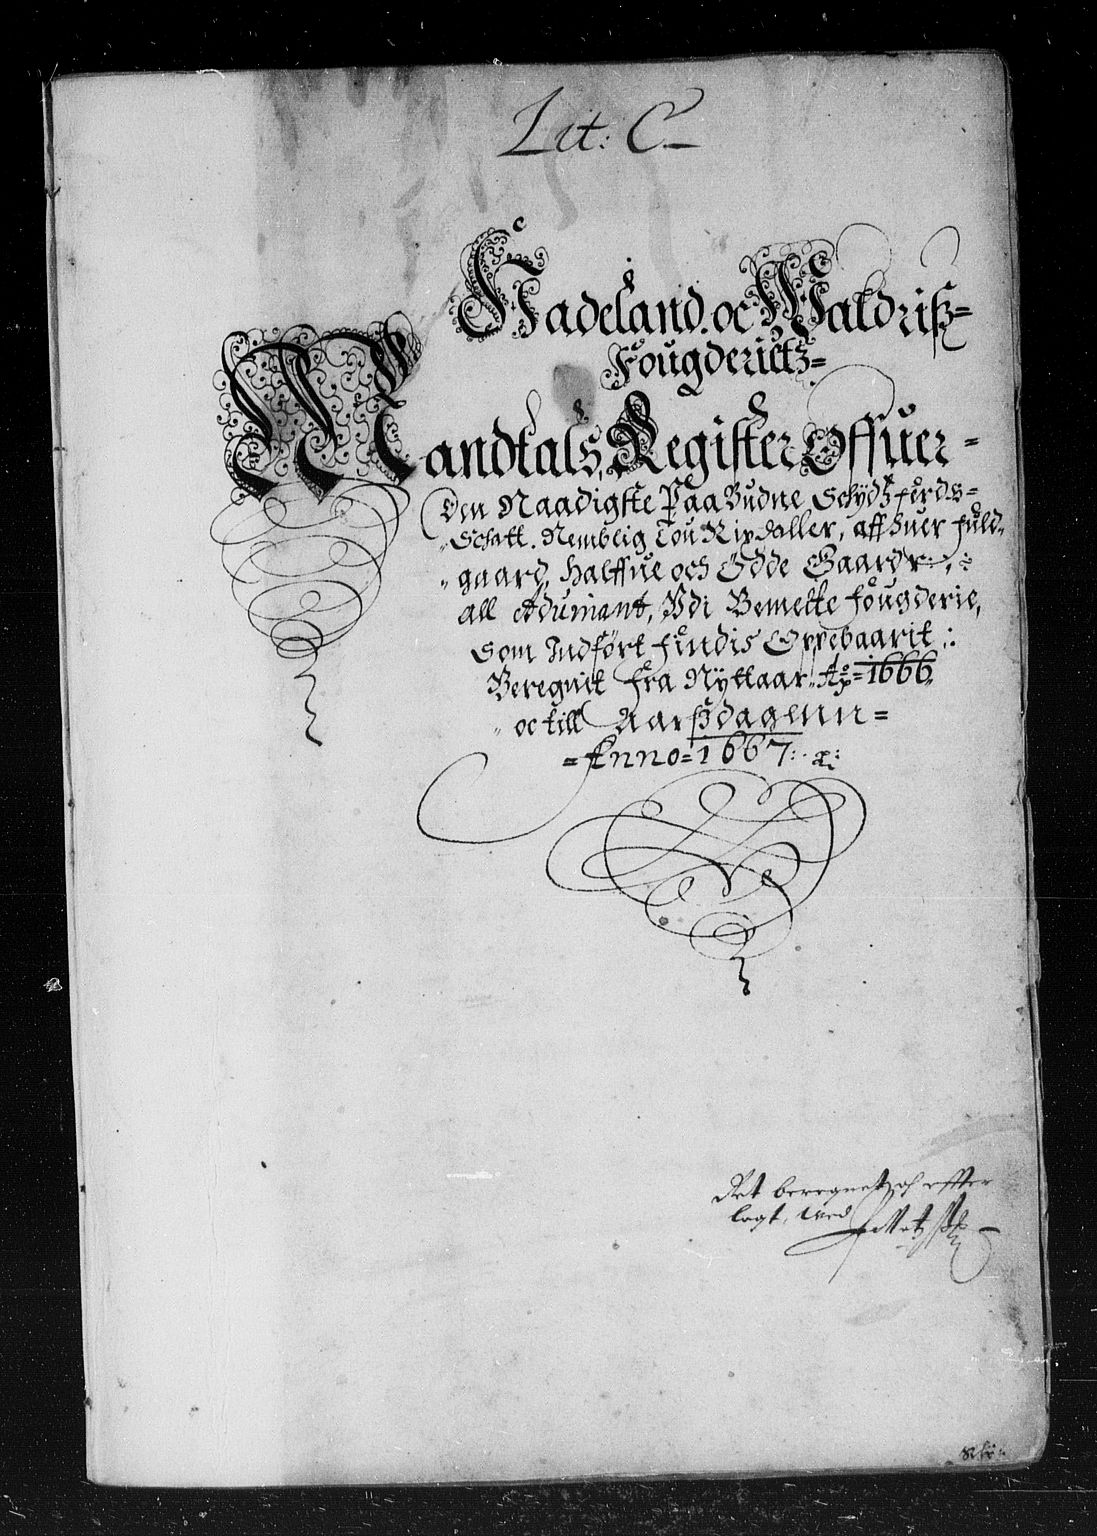 Lit: C.
Hadeland. oc Waldriß=
Fougderictz=
Mandtals, Register Offuer=
Den Naadigste Paa Budne Schydtzferds=
Schatt. Nemblig Tou Rixdaller, aff huer fuld=
gaard, Halffue och Ødde Gaardr
all Aduinant, Vdi Bemelte fougderie,
Som Indført findis Oppebaarit:
Beregnit fra Nyttaar Ao= 1666
oc till Aarßdagenn=
=Anno=1667:
Ret beregnet och effter
lagt, Med